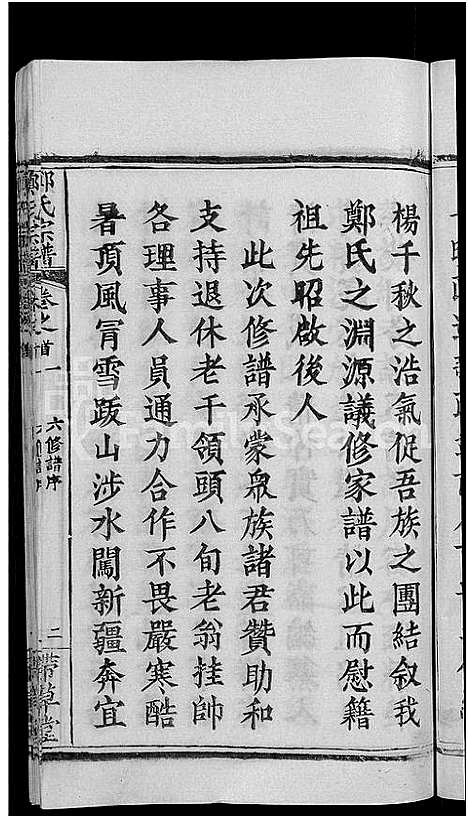 楊千秋之浩氣促吾族之團結敘我
鄭氏之淵源議修家譜以此而慰籍
祖先昭啟後人
此次修譜承蒙眾族諸君贊助和
支持退休老干領頭八旬老翁挂帥
各理事人員通力合作不畏嚴寒酷
暑頂風冐雪跋山涉水闖新疆奔宜
鄭氏宗譜
卷之首一
六修譜序
二
帶草堂
FamilySearch